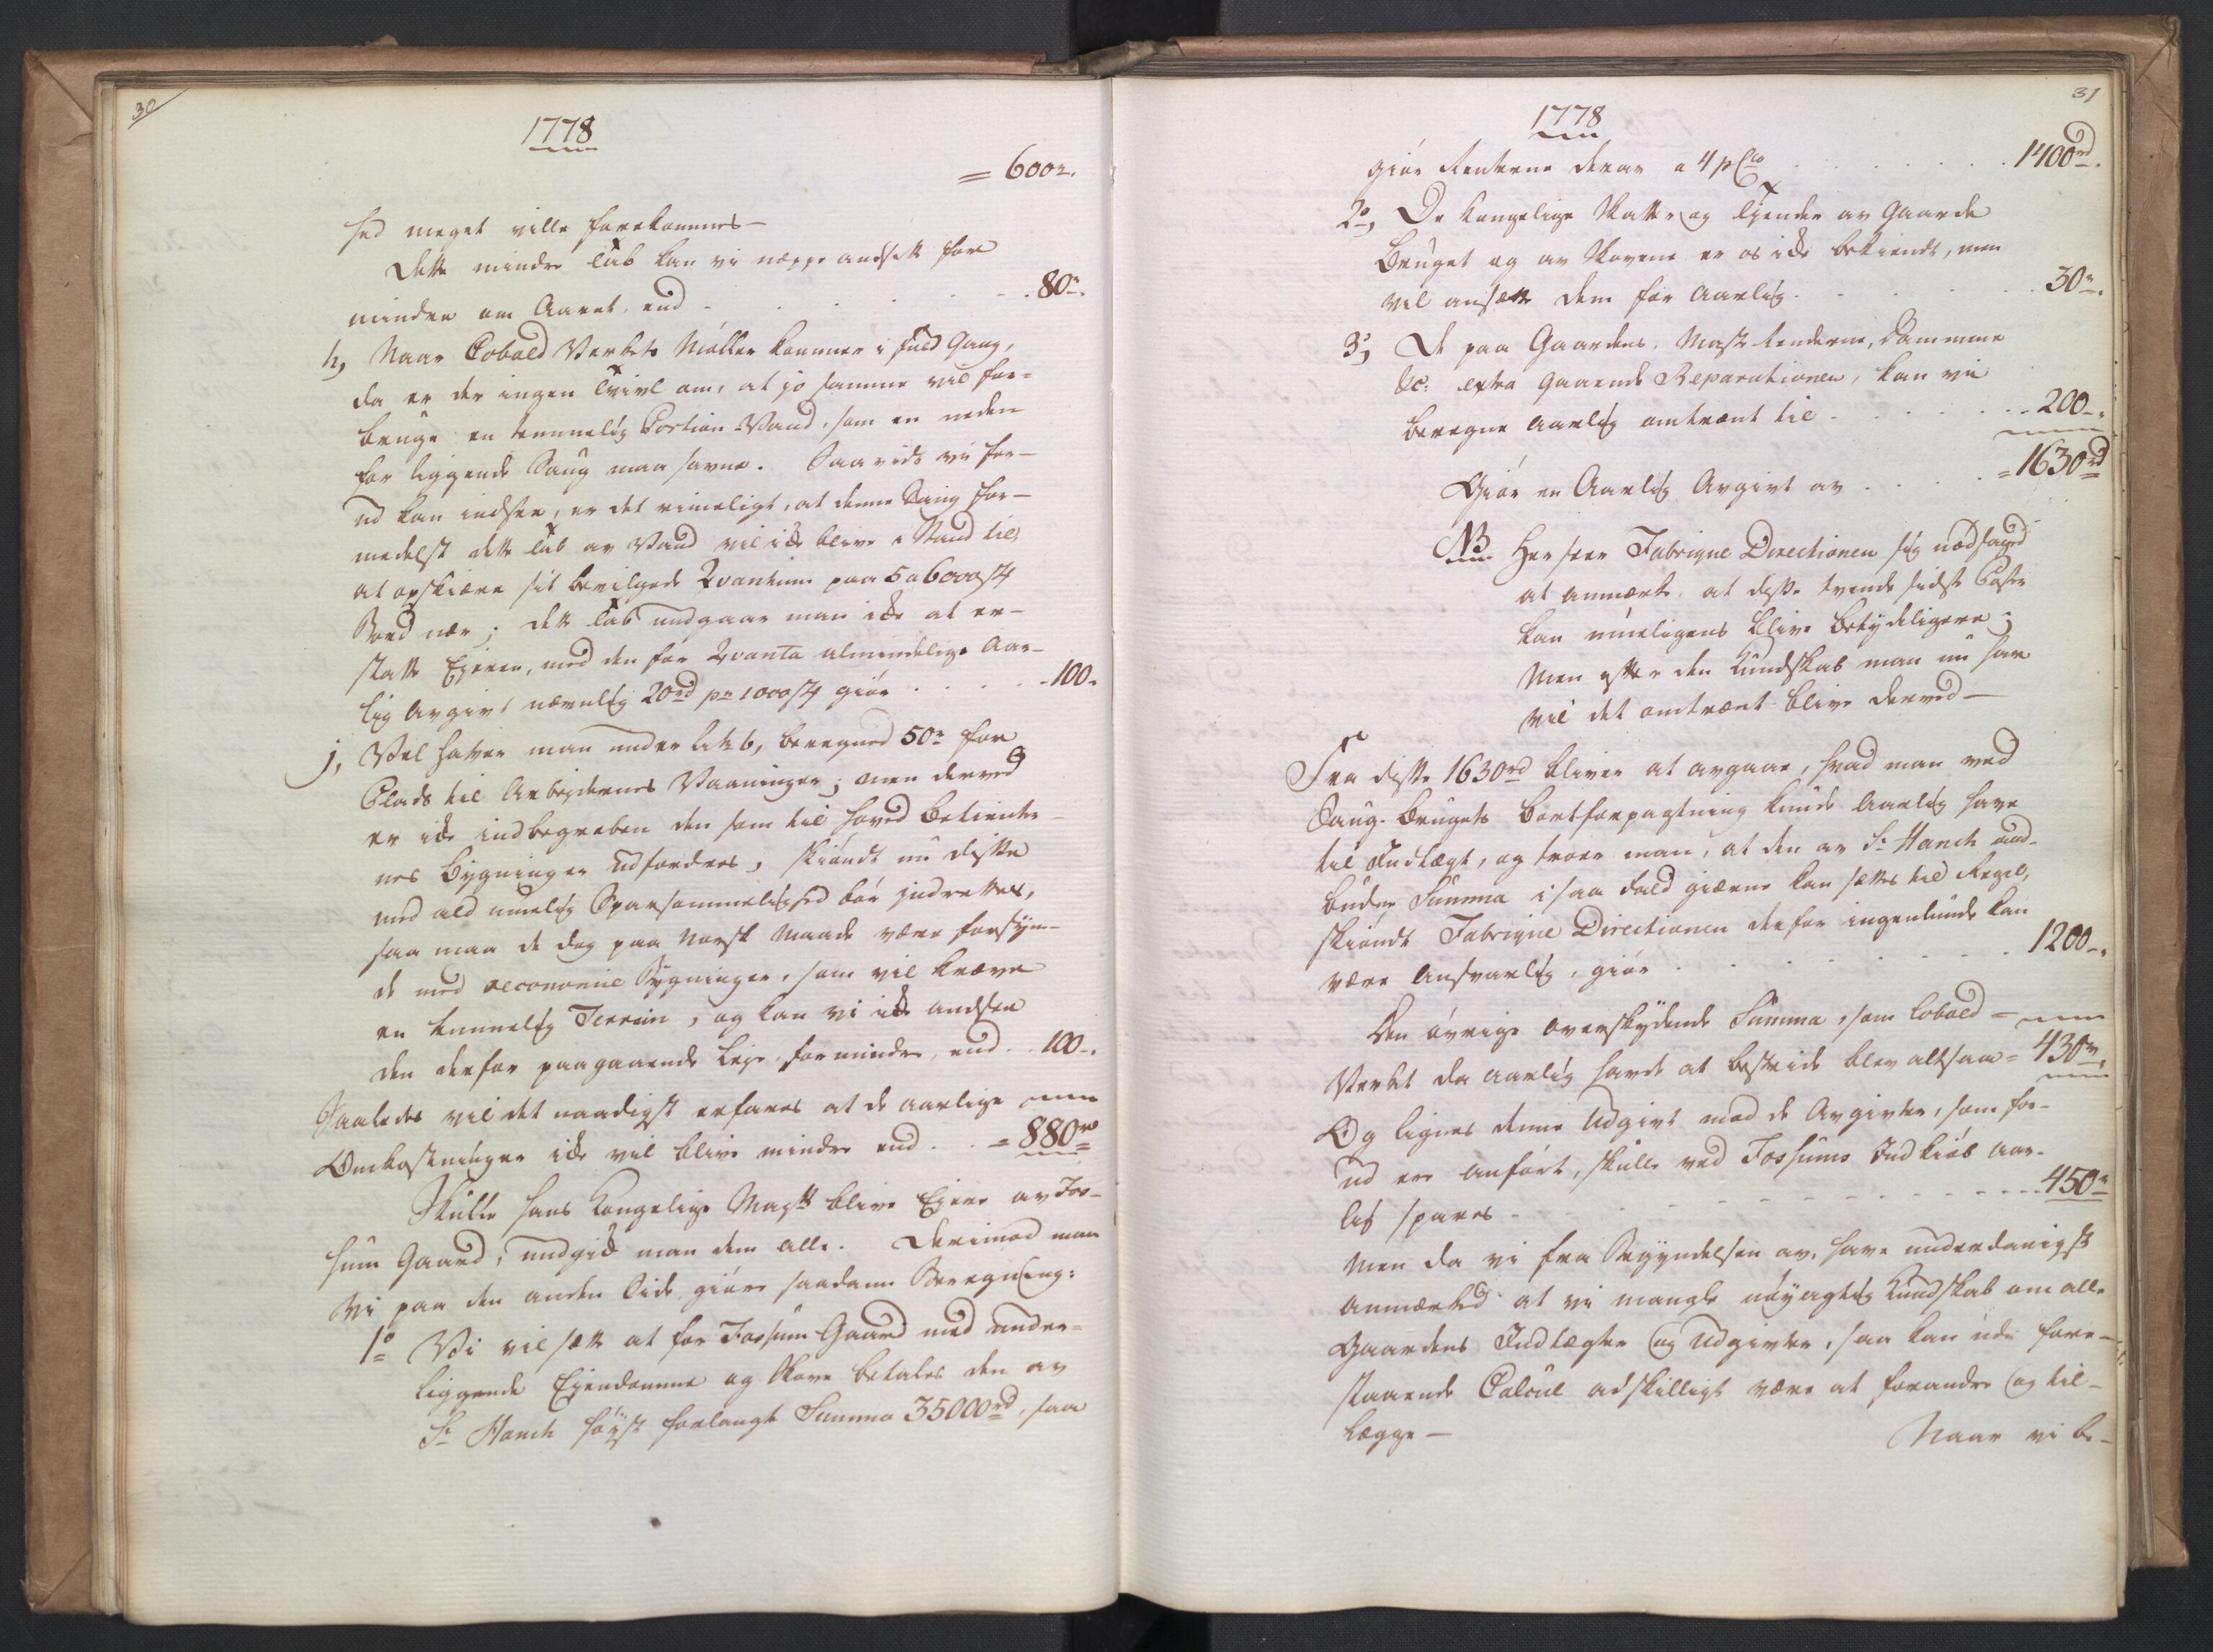 30
1778
= 600rd.
hed meget ville forekommes —
Dette mindre Tab kan vi neppe ansette for
mindre om Aaret, end . . . . . . 80rd.
h, Naar Cobold Verkets Møller kommer i fuld Gang,
da er der ingen Tvivl om, at jo samme vil for-
bruge en temmelig Portion Vand, som en neden
for liggende Saug maa savne. Saavidt vi for-
ud kan indsee, er det rimeligt, at denne Saug for-
medelst dette Tab av Vand vil ikke blive i Stand til
at opskiære sit bevilgede Qvantum paa 5 a 6000 st
Bord nær; dette Tab undgaar man ikke at er-
statte Ejeren, med den for Qvanta almindelige Aar-
lig Avgivt nemlig 20rd pr 1000 st giør . . . . 100.
j, Vel haver man under Litt b, beregned 50rd for
Plads til Arbejdernes Vaaninger; men derved
er ikke indbegreben den som til hoved Betienter-
nes Bygninger udfordres, skiøndt nu disse
med ald muelig Sparsommelighed bør indrettes,
saa maa de dog paa Norsk Maade være forsyn-
de med oeconomie Bygninger, som vil kræve
en temmelig Terrain, og kan vi ikke andsee
den derfor paagaaende Leje, for mindre, end . . 100.
Saaledes vil det naadigst erfares at de aarlige
Omkostninger ikke vil blive mindre end . . = 880rd
Skulle Hans Kongelige Maystt blive Ejere av Fos-
sum Gaard, undgik man dem alle. Derimod maa
Vi paa den anden Side giøre saadann Beregning:
1o Vi vil sette at for Fossum Gaard med under-
liggende Ejendomme og Skove betales den av
Sr Hanch høyst forlangte Summa 35000rd, saa
31
1778
giør Renterne derav a 4 pCto . . . . . . 1400rd.
2o, De kongelige Skatter og Tjender av Gaarde
Bruget og av Skovene er os ikke bekiendt, men
vil ansette dem for Aarlig . . . . . . 30rd.
3o, De paa Gaardens, Mast Renderne, Dammene
&c: extra gaaende Reparationer, kan vi
beregne Aarlig omtrent til . . . . . . 200.
Giør en Aarlig Avgivt av . . . . = 1630rd
NB Her seer Fabrique Directionen sig nødsaged
at anmærke, at disse tvende sidste Poster
kan mueligens blive betydeligere;
Men efter den Kundskab man nu har
vil det omtrent blive derved —
Fra disse 1630rd bliver at avgaae, hvad man ved
Saug-Brugets Bortforpagtning kunde Aarlig have
til Indtægt, og troer man, at den av Sr Hanch aud-
budne Summa i saa Fald gierne kan settes til Regel,
skiøndt Fabrique Directionen derfor ingenlunde kan
være Ansvarlig, giør . . . . . . . 1200.
Den øvrige overskydende Summa, som Cobold-
Verket da aarlig havde at bestride blev altsaa = 430rd.
Og lignes denne Udgivt mod de Avgivter, som for-
ud ere anført, skulle ved Fossums Indkiøb aar-
lig spares . . . . . . . . 450rd
Men da vi fra Begyndelsen av, have underdanigst
anmærked at vi mangle nøyagtig Kundskab om alle
Gaardens Indtægter og Udgivter, saa kan udi fore-
staaende Calcul adskilligt være at forandre og til-
legge —
Naar vi be-